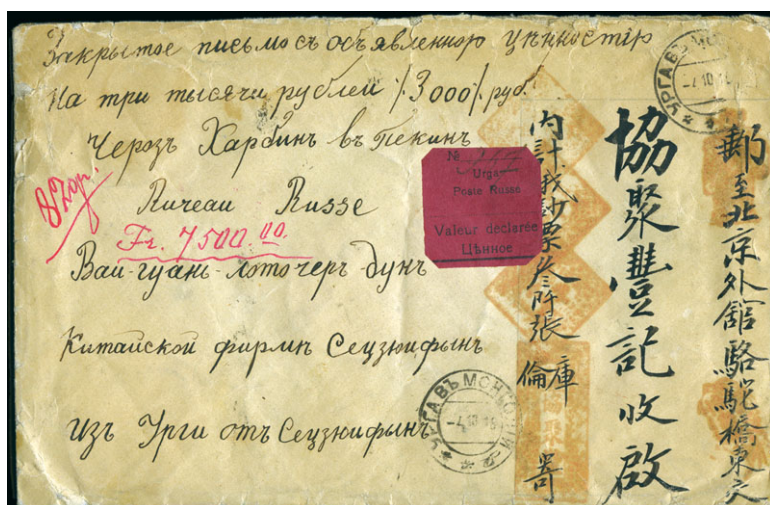 Закрытое письмо съ объявленною цѣнностію
На три тысячи рублей /3000/ руб.
Черозъ Харбинъ въ Пекинъ
Bureau Russe
82 гр.
Fr. 7500.00.
Вай-гуань-лото-черъ-дунъ
Китайской фирмѣ Сецзюйфынъ
Изъ Урги отъ Сецзюйфынъ
№
Urga
Poste Russe
Valeur déclarée
Цѣнное
УРГА ВЪ
УРГА ВЪ МОНГОЛІИ
郵至北京外館駱駝橋東交
協聚豐記收啟
內計俄鈔票叁阡張
庫倫
寄